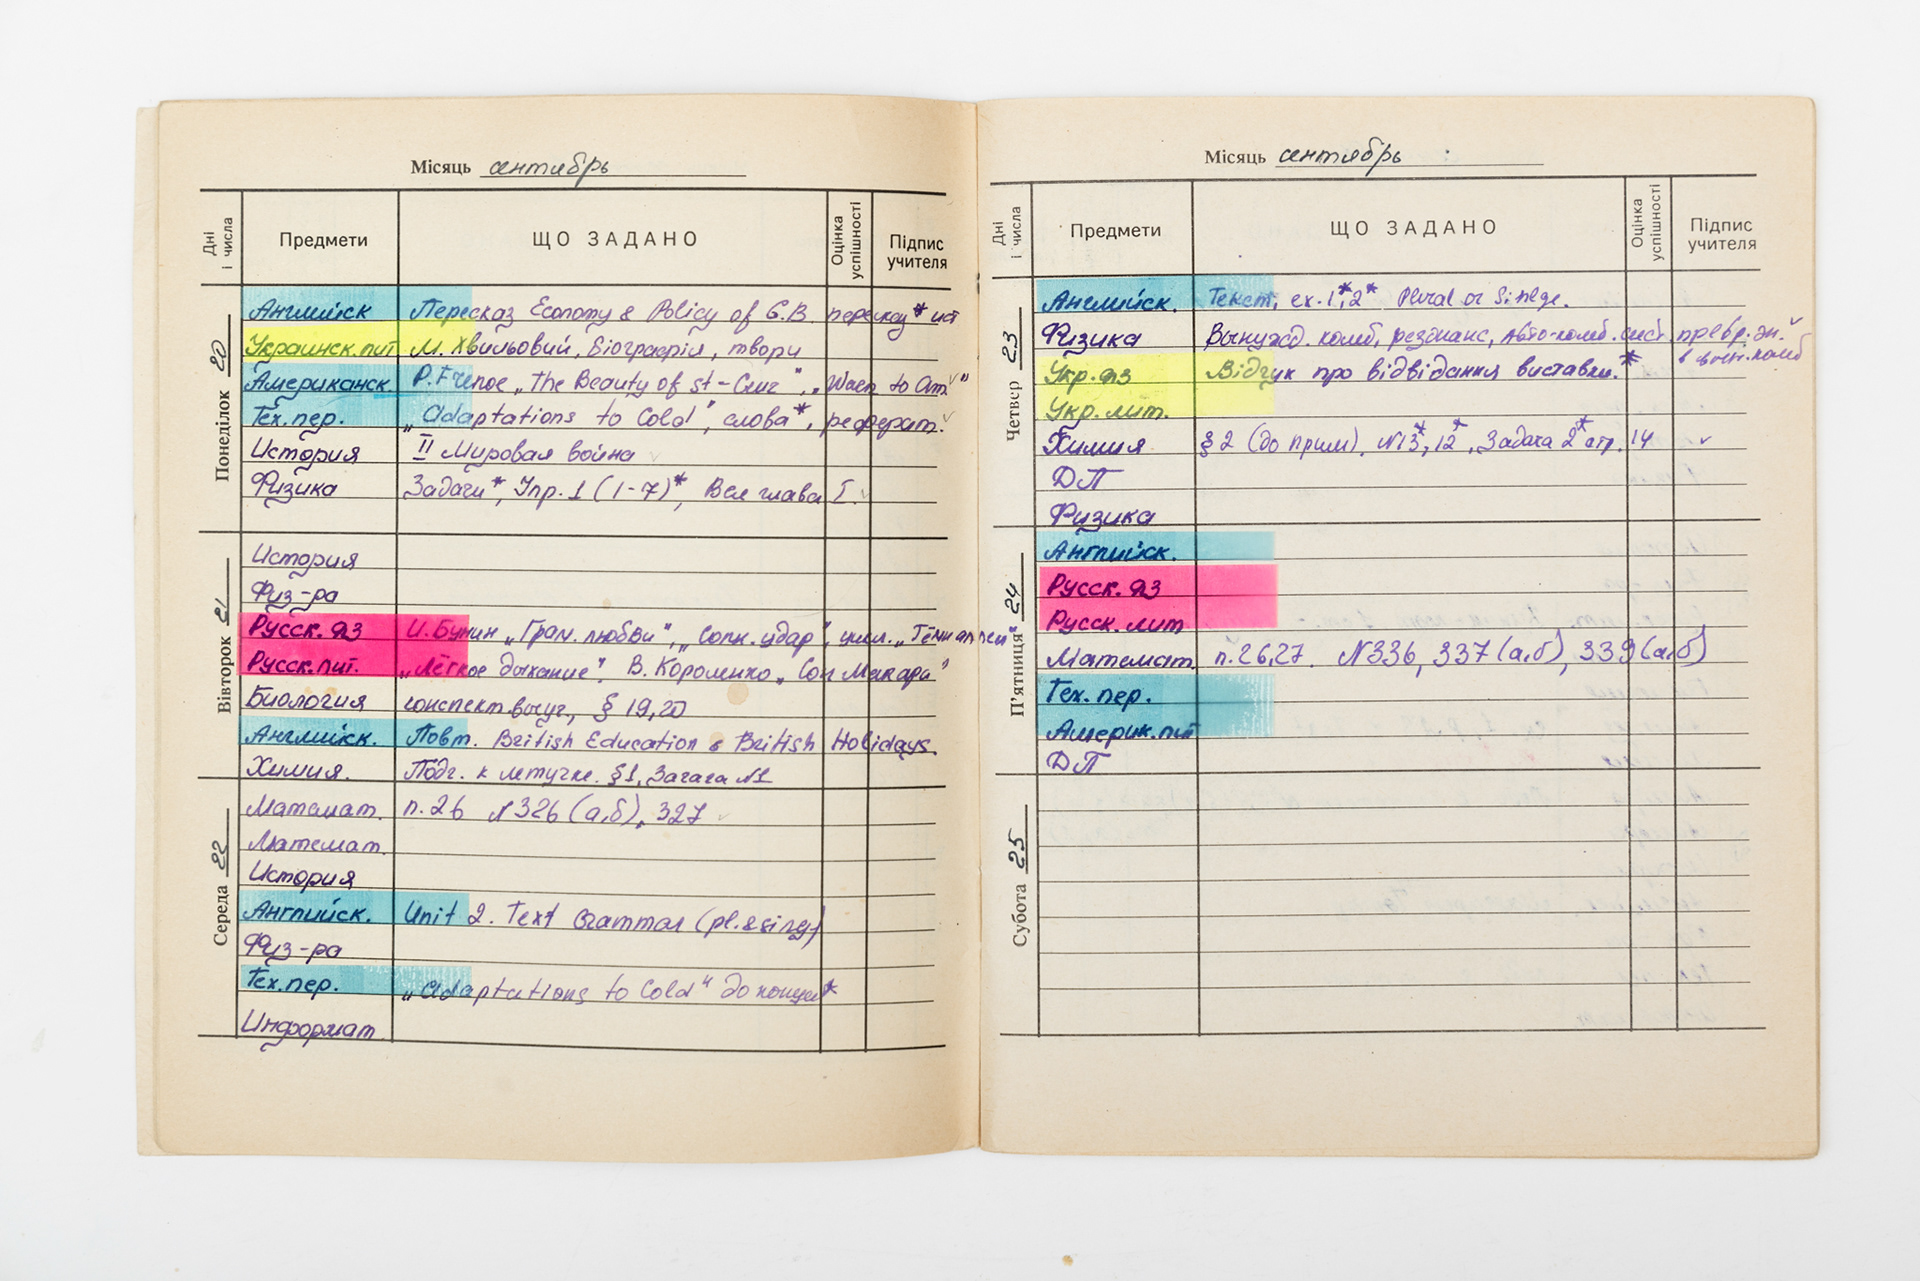 Місяць сентябрь
Дні і числа
Предмети
ЩО ЗАДАНО
Оцінка успішності
Підпис учителя
Понеділок 20
Английск Пересказ Economy & Policy of G.B. пересказ* ист
Украинск. лит М. Хвильовий, біографія, твори
Американск. "The Beauty of
Тех. пер. „Adaptations to Cold", слова*, реферат.
История II Мировая война
Физика Задачи*, Упр. 1 (1-7)*, Вся глава I.
Вівторок 21
История
Физ-ра
Русск. яз И. Бунин „Грам. любви", „Солн. удар", цикл „Тёмн аллеи"
Русск. лит. „Лёгкое дыхание". В. Короленко „Сон Макара"
Биология конспект выуч, § 19,20
Английск. Повт. British Education & British Holidays.
Химия. Подг. к летучке. §1, Задача N1
Середа 22
Математ. п. 26 N326 (а,б), 327
Математ.
История
Английск. Unit 2. Text Grammar (pl. & sing)
Физ-ра
Тех. пер. „Adaptations to Cold" до конца*
Информат.
Місяць сентябрь
Дні і числа
Предмети
ЩО ЗАДАНО
Оцінка успішності
Підпис учителя
Четвер 23
Английск. Текст, ex. 1*, 2* Plural or
Физика Вынужд. колеб, резонанс, Авто-колеб. сист. превр. эн.
Укр. яз Відгук про відвідання виставки.*
Укр. лит.
Химия § 2 (до прим), N13*, 12*, Задача 2* стр. 14
ДП
Физика
П'ятниця 24
Английск.
Русск. яз
Русск. лит
Математ. п. 26,27. N336, 337 (а,б), 339 (а,б)
Тех. пер.
Америк. лит
ДП
Субота 25